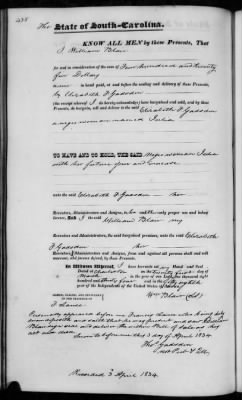 438
The State of South-Carolina.
KNOW ALL MEN by these Presents, That
I William Blair
for and in consideration of the sum of Four hundred and twenty
four Dollars
to me in hand paid, at and before the sealing and delivery of these Presents,
by Elizabeth P Gadsden
(the receipt whereof I do hereby acknowledge) have bargained and sold, and by these
Presents, do bargain, sell and deliver to the said Elizabeth P Gadsden
a negro woman named Julia
TO HAVE AND TO HOLD, THE SAID negro woman Julia
with her future issue and increase
unto the said Elizabeth P Gadsden her
Executors, Administrators and Assigns, to her and their only proper use and behoof
forever. And I the said William Blair my
Executors and Administrators, the said bargained premises, unto the said Elizabeth
P Gadsden her
Executors, Administrators and Assigns, from and against all persons shall and will
warrant, and forever defend, by these Presents.
In Witness Whereof, I have hereunto set my Hand and Seal
Dated at Charleston on the Twenty first day of
March in the year of our Lord one thousand eight
hundred and thirty four and in the fifty eighth
year of the Independence of the United States of America.
SIGNED, SEALED, AND DELIVERED
IN THE PRESENCE OF
Wm Blair (LS)
F Lance
Personally appeared before me Francis Lance who being duly
sworn deposeth and saith that he was present and saw William
Blair sign seal and deliver the within Bill of Sale as his
act and deed. Sworn to before me this 3 day of April 1834.
Thos Gadsden
Recorded 3 April 1834.